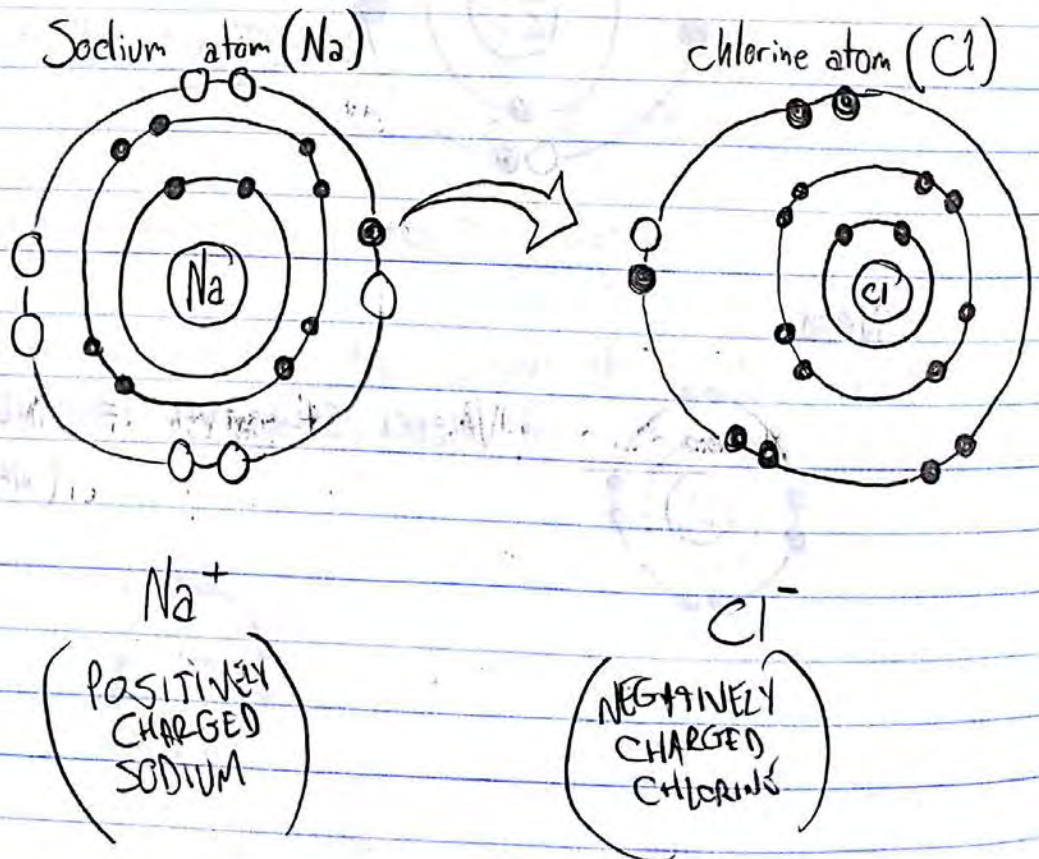 Sodium atom (Na)
chlorine atom (Cl)
Na
Cl
Na⁺
Cl⁻
(POSITIVELY
CHARGED
SODIUM)
(NEGATIVELY
CHARGED
CHLORINE)